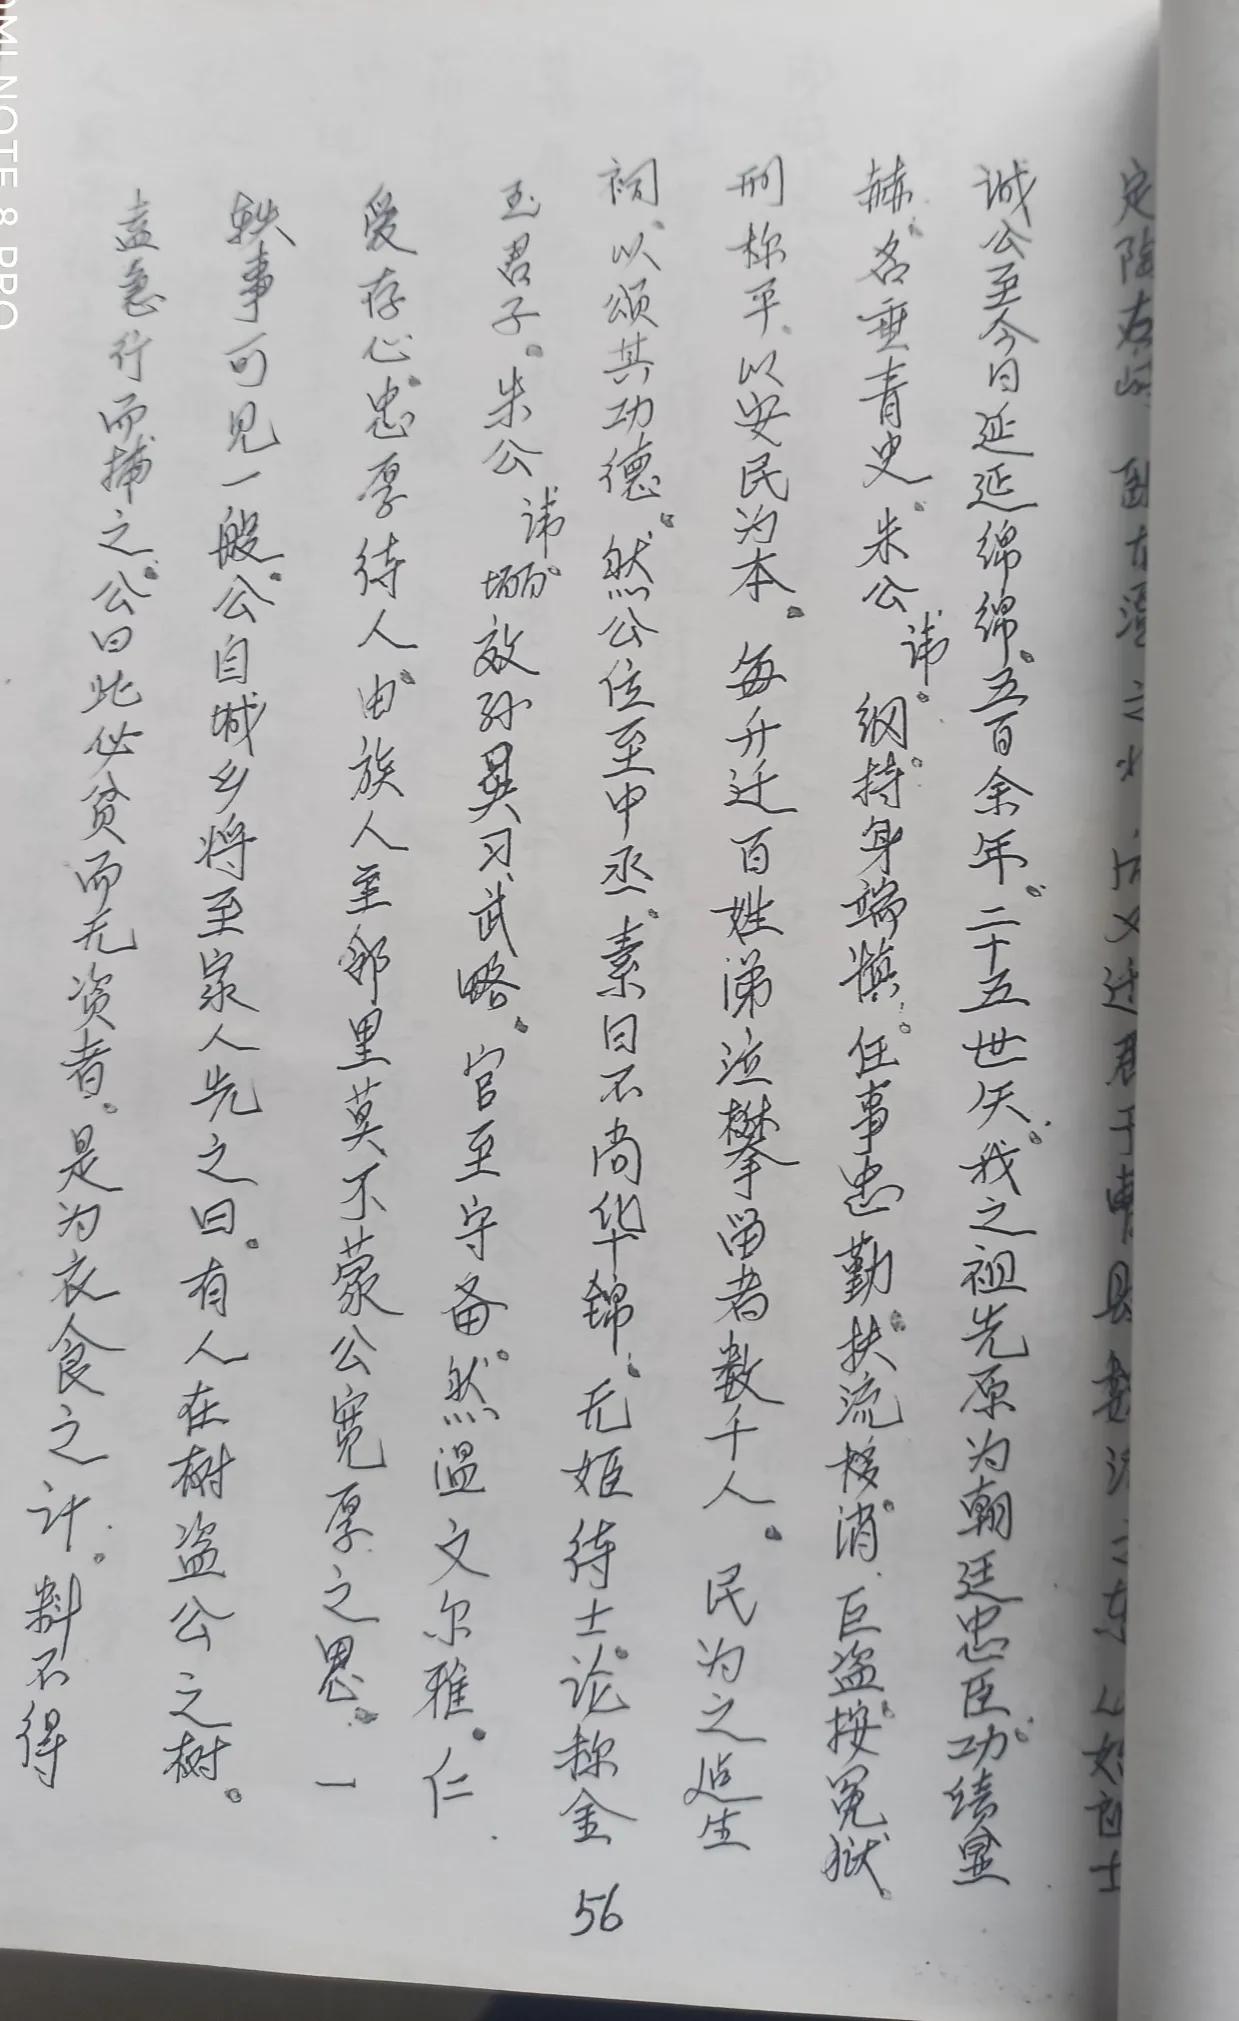 定陶
诚公至今日延延绵绵。五百余年。二十五世矣。我之祖先原为朝廷忠臣。功绩显
赫。名垂青史。朱公讳。纲。持身端慎。任事忠勤。扶流移消。巨盗按。冤狱。
刑称平。以安民为本。每升迁百姓涕泣攀留者数千人。民为之造生
祠。以颂其功德。然公位至中丞。素日不尚华锦。无姬待士。论称金
玉君子。朱公讳埛。效孙吴习武略。官至守备。然温文尔雅。仁
爱存心。忠厚待人。由族人至邻里莫不蒙公宽厚之恩。一
轶事可见一般。公自城乡将至家人先之曰。有人在树盗公之树。
盍急行而捕之。公曰此必贫而无资者。是为衣食之计。料不得
56
OMI NOTE 8 PRO